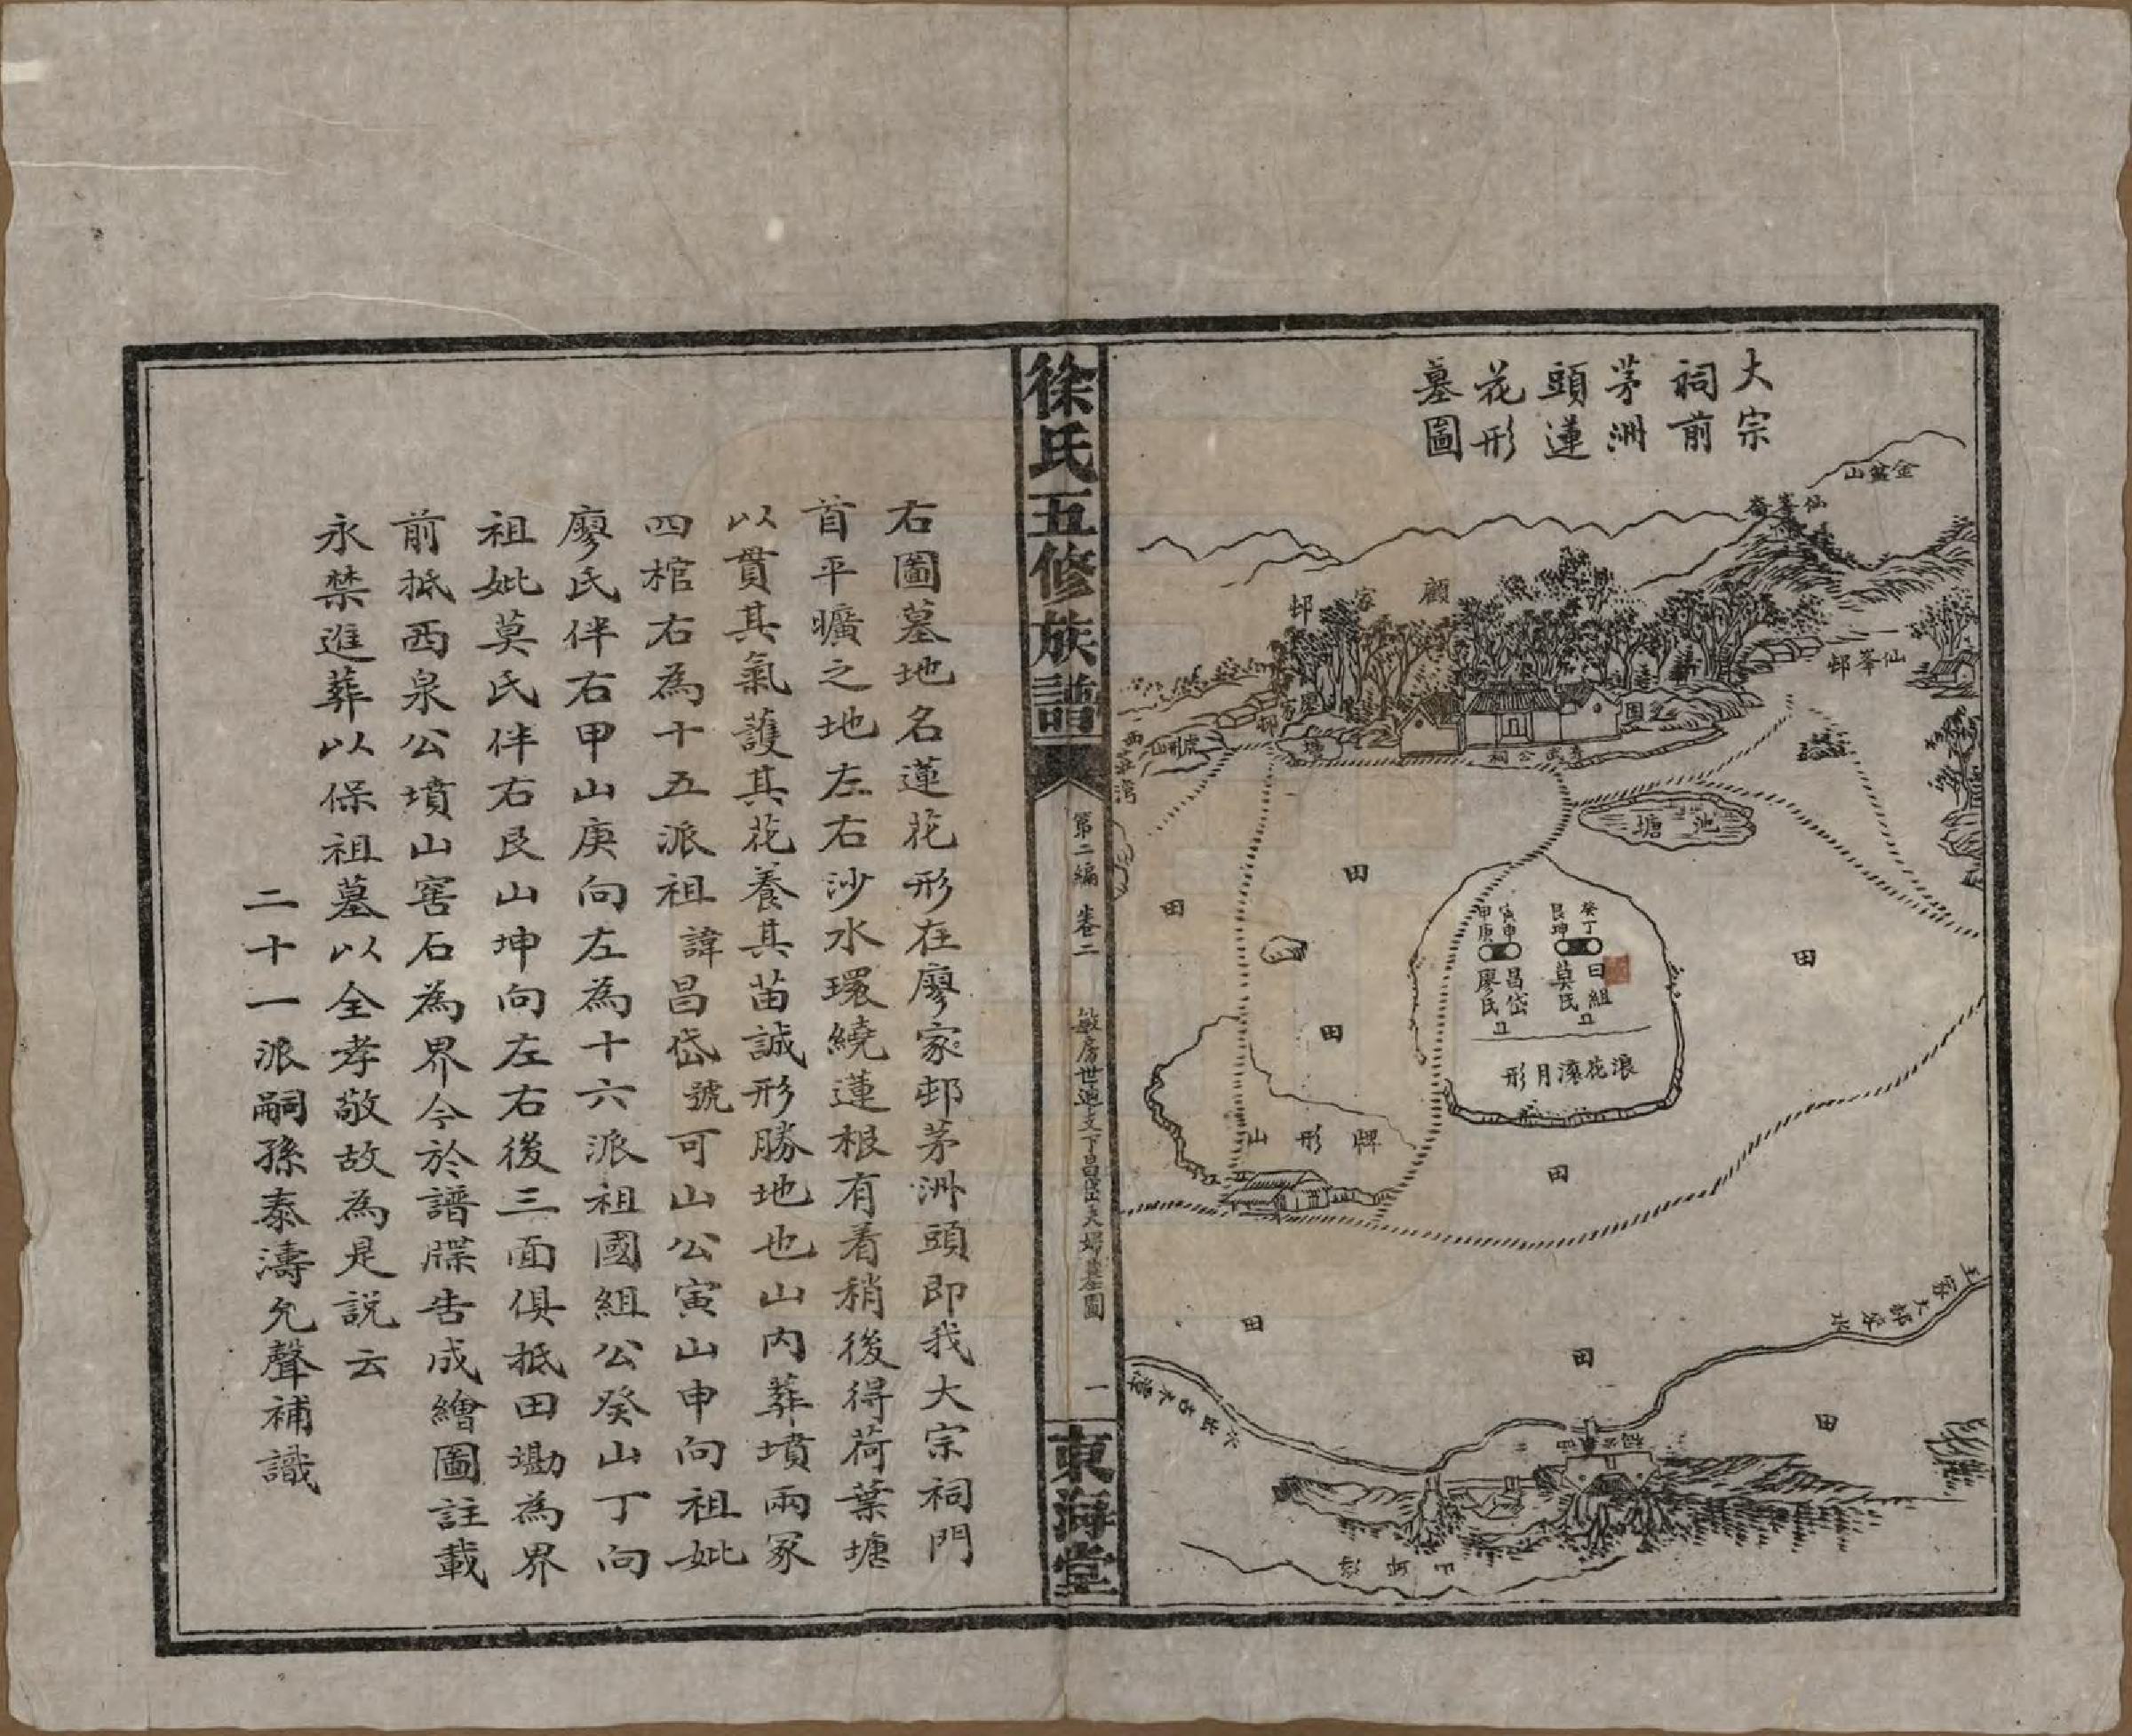 大宗
祠前
茅洲
頭蓮
花形
墓圖
金盆山
仙峯嵛
仙峯邨
顧家邨
廖家邨
虎形山
塘
公祠
園
池塘
田
田
田
田
田
田
田
田
癸丁
艮坤
寅申
甲庚
曰組
莫氏
昌岱
廖氏
浪花滾月形
牌形山
王家大邨
徐氏五修族譜
第二編
卷二
敏房世迪支下昌岱夫婦墓圖
一
東海堂
右圖墓地名蓮花形在廖家邨茅洲頭即我大宗祠門
首平曠之地左右沙水環繞蓮根有着稍後得荷葉塘
以貫其氣護其花養其苗誠形勝地也山內葬墳兩冢
四棺右為十五派祖諱昌岱號可山公寅山申向祖妣
廖氏伴右甲山庚向左為十六派祖國組公癸山丁向
祖妣莫氏伴右艮山坤向左右後三面俱抵田墈為界
前抵西泉公墳山窖石為界今於譜牒告成繪圖註載
永禁進葬以保祖墓以全孝敬故為是說云
二十一派嗣孫泰濤允聲補識